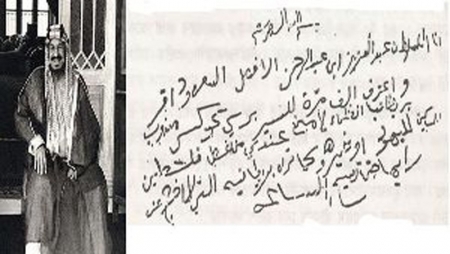 بسم الله الرحمن الرحيم
انا السلطان عبد العزيز ابن عبد الرحمن الفصل السعود اقر
واعترف الف مرة للسير برسي كوكس مندوب
بريطانيا العظماء لا مانع عندي فلسطين
لليهود او غيرهم بريطانيه التي لا اخرج عن
رايها حتى تصيح الساعه